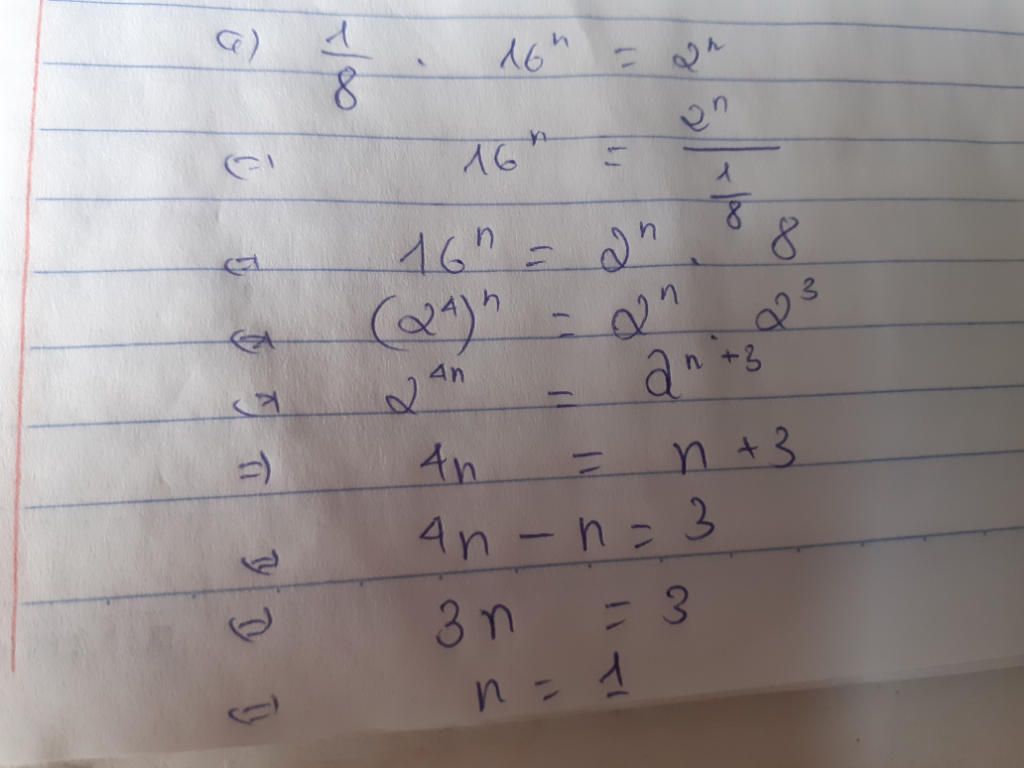 a) 1/8 . 16ⁿ = 2ⁿ
⇔ 16ⁿ = 2ⁿ / (1/8)
⇔ 16ⁿ = 2ⁿ . 8
⇔ (2⁴)ⁿ = 2ⁿ . 2³
⇔ 2⁴ⁿ = 2ⁿ⁺³
⇒ 4n = n + 3
⇔ 4n − n = 3
⇔ 3n = 3
⇔ n = 1